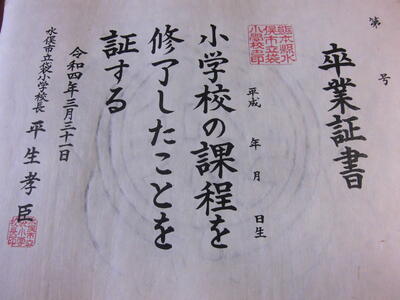 第 号
卒業証書
熊本県水
俣市立袋
小学校之印
平成 年 月 日生
小学校の課程を
修了したことを
証する
令和四年三月三十一日
水俣市立袋小学校長 平生孝臣